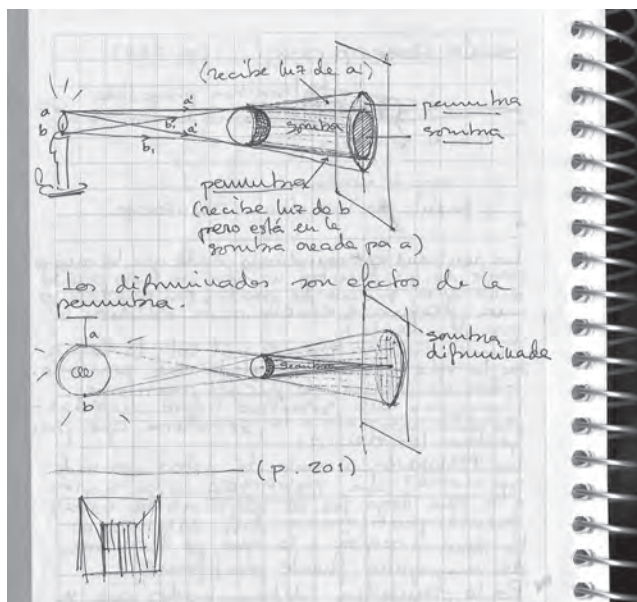 (recibe luz de a)
a
b
a'
b₁
a'
b₁
sombra
penumbra
sombra
penumbra
(recibe luz de b
pero está en la
sombra creada por a)
Los difuminados son efectos de la
penumbra.
a
b
sombra
sombra
difuminada
(p. 201)